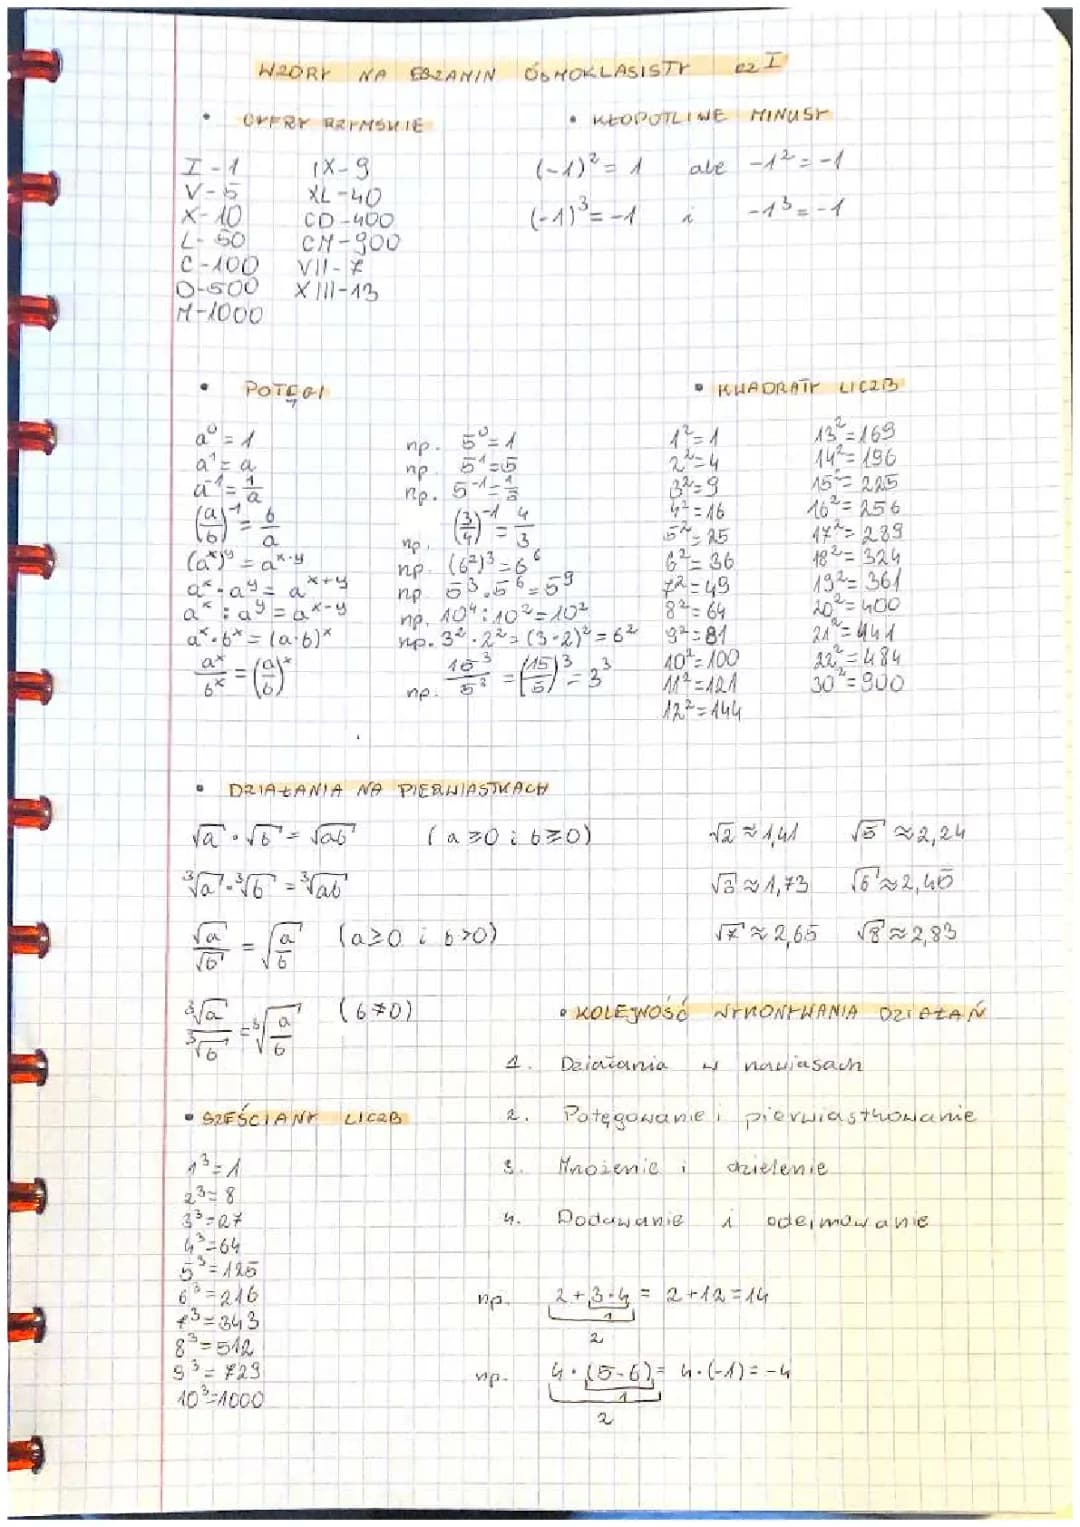 WZORY NA EGZAMIN ÓSMOKLASISTY cz I
• CYFRY RZYMSKIE
I - 1
V - 5
X - 10
L - 50
C - 100
D - 500
M - 1000
IX - 9
XL - 40
CD - 400
CM - 900
VII - 7
XIII - 13
• KŁOPOTLIWE MINUSY
(-1)² = 1 ale -1² = -1
(-1)³ = -1 i -1³ = -1
• POTĘGI
a⁰ = 1 np. 5⁰ = 1
a¹ = a np. 5¹ = 5
a⁻¹ = 1/a np. 5⁻¹ = 1/5
(a/b)⁻¹ = b/a np. (3/4)⁻¹ = 4/3
(aˣ)ʸ = aˣ·ʸ np. (6²)³ = 6⁶
aˣ · aʸ = aˣ⁺ʸ np. 5³ · 5⁶ = 5⁹
aˣ : aʸ = aˣ⁻ʸ np. 10⁴ : 10² = 10²
aˣ · bˣ = (a·b)ˣ np. 3² · 2² = (3·2)² = 6²
aˣ/bˣ = (a/b)ˣ np. 15³/5³ = (15/5)³ = 3³
• KWADRATY LICZB
1² = 1
2² = 4
3² = 9
4² = 16
5² = 25
6² = 36
7² = 49
8² = 64
9² = 81
10² = 100
11² = 121
12² = 144
13² = 169
14² = 196
15² = 225
16² = 256
17² = 289
18² = 324
19² = 361
20² = 400
21² = 441
22² = 484
30² = 900
• DZIAŁANIA NA PIERWIASTKACH
√a · √b = √ab (a ≥ 0 i b ≥ 0)
∛a · ∛b = ∛ab
√a/√b = √(a/b) (a ≥ 0 i b > 0)
∛a/∛b = ∛(a/b) (b ≠ 0)
√2 ≈ 1,41 √5 ≈ 2,24
√3 ≈ 1,73 √6 ≈ 2,45
√7 ≈ 2,65 √8 ≈ 2,83
• KOLEJNOŚĆ WYKONYWANIA DZIAŁAŃ
1. Działania w nawiasach
2. Potęgowanie i pierwiastkowanie
3. Mnożenie i dzielenie
4. Dodawanie i odejmowanie
np. 2 + 3·4 = 2 + 12 = 14
1
2
np. 4 · (5-6) = 4·(-1) = -4
1
2
• SZEŚCIANY LICZB
1³ = 1
2³ = 8
3³ = 27
4³ = 64
5³ = 125
6³ = 216
7³ = 343
8³ = 512
9³ = 729
10³ = 1000